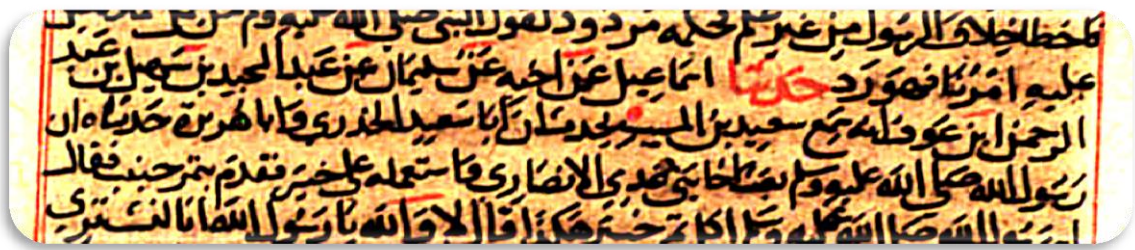 فاخطا خلاف الرسول من غير علم فحكمه مردود لقول النبي صلى الله عليه وسلم من عمل
عليه امرنا فهو رد حدثنا اسماعيل عن اخيه عن سليمان عن عبد المجيد بن سهيل بن عبد
الرحمن ابن عوف انه سمع سعيد بن المسيب يحدث ان ابا سعيد الخدري وابا هريرة حدثاه ان
رسول الله صلى الله عليه وسلم بعث اخا بني عدي الانصاري واستعمله على خيبر فقدم بتمر جنيب فقال
رسول الله صلى الله عليه وسلم اكل تمر خيبر هكذا قال لا والله يا رسول الله انا لنشتري